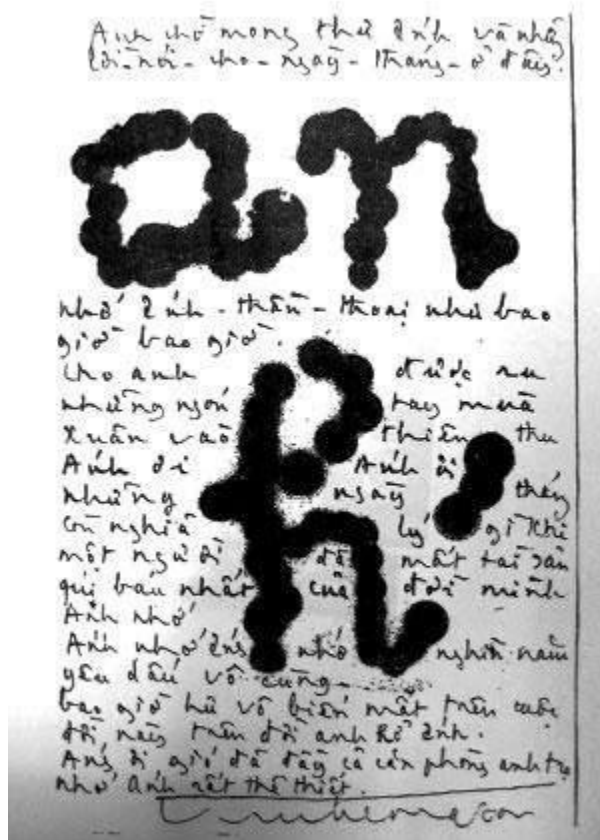 Anh chờ mong thư Ánh và những
lời - nói - cho - ngày - tháng - ở đây.
an
nhớ Ánh - thần - thoại như bao
giờ bao giờ.
Cho anh được ru
những ngón tay mùa
Xuân vào thiên thu
Ánh ơi Ánh ơi
những ngày tháng
còn nghĩa lý gì khi
một người đã mất tài sản
quí báu nhất của đời mình
Anh nhớ
Anh nhớ Ánh nhớ nghìn năm
yêu dấu vô cùng
bao giờ hư vô biến mất trên cuộc
đời này trên đời anh kể Ánh.
Ánh ơi gió đã đầy cả căn phòng anh trọ
nhớ Ánh rất thê thiết.